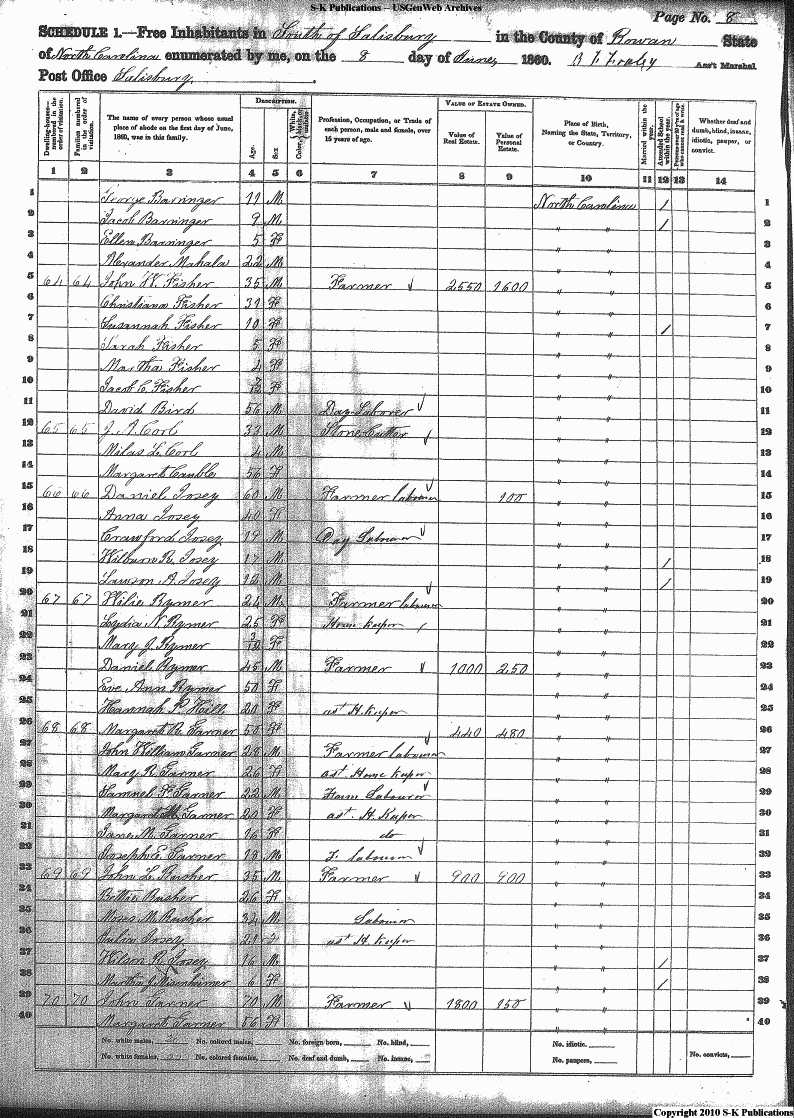 S-K Publications – USGenWeb Archives
Page No. 8
SCHEDULE 1.—Free Inhabitants in South of Salisbury in the County of Rowan State
of North Carolina enumerated by me, on the 8 day of June, 1860. Ass't Marshal
Post Office Salisbury.
Dwelling-houses— numbered in the order of visitation.
Families numbered in the order of visitation.
The name of every person whose usual place of abode on the first day of June, 1860, was in this family.
DESCRIPTION.
Age.
Sex
Color, White, black, or mulatto
Profession, Occupation, or Trade of each person, male and female, over 15 years of age.
VALUE OF ESTATE OWNED.
Value of Real Estate.
Value of Personal Estate.
Place of Birth, Naming the State, Territory, or Country.
Married within the year.
Attended School within the year.
Whether deaf and dumb, blind, insane, idiotic, pauper, or convict.
1 2 3 4 5 6 7 8 9 10 11 12 13 14
1 George Barringer 11 M North Carolina / 1
2 Jacob Barringer 9 M " " / 2
3 Ellen Barringer 5 F " " 3
4 Alexander Mahala 22 M " " 4
5 64 64 John W. Fisher 35 M Farmer 2550 1600 " " 5
6 Christiana Fisher 31 F " " 6
7 Susannah Fisher 10 F " " / 7
8 Sarah Fisher 5 F " " 8
9 Martha Fisher 4 F " " 9
10 Jacob C. Fisher F " " 10
11 David Bird 56 M Day Laborer " " 11
12 65 65 J. A. Corl 33 M Stone Cutter " " 12
13 Milas L. Corl 4 M " " 13
14 Margaret Cauble 56 F " " 14
15 66 66 Daniel Josey 60 M Farmer labourer 100 " " 15
16 Anna Josey 40 F " " 16
17 Crawford Josey 19 M Day Labourer " " 17
18 Wilburn R. Josey 17 M " " / 18
19 Lawson A. Josey 12 M " " / 19
20 67 67 Wilie Rymer 24 M Farmer labourer " " 20
21 Lydia N. Rymer 25 F House keeper " " 21
22 Mary J. Rymer 3/12 F " " 22
23 Daniel Rymer 45 M Farmer 1000 250 " " 23
24 Eve Ann Rymer 50 F " " 24
25 Hannah P. Hill 20 F ast H. Keeper " " 25
26 68 68 Margaret R. Garner 50 F 440 480 " " 26
27 John William Garner 28 M Farmer labourer " " 27
28 Mary R. Garner 26 F ast House keeper " " 28
29 Samuel F. Garner 22 M Farm Labourer " " 29
30 Margaret M. Garner 20 F ast. H. Keeper " " 30
31 Jane M. Garner 16 F do " " 31
32 Joseph E. Garner 13 M F. labourer " " 32
33 69 69 John L. Rusher 35 M Farmer 900 900 " " 33
34 Bettie Rusher 26 F " " 34
35 Moses M. Rusher 32 M Labourer " " 35
36 Julia Josey 21 ast H. keeper " " 36
37 Wilson R. Josey 16 M " " / 37
38 Martha J. Misenheimer 6 F " " / 38
39 70 70 John Garner 70 M Farmer 1800 150 " " 39
40 Margaret Garner 56 F " " 40
No. white males, No. colored males, No. foreign born, No. blind, No. idiotic.
No. white females, No. colored females, No. deaf and dumb, No. insane, No. paupers, No. convicts,
Copyright 2010 S-K Publications